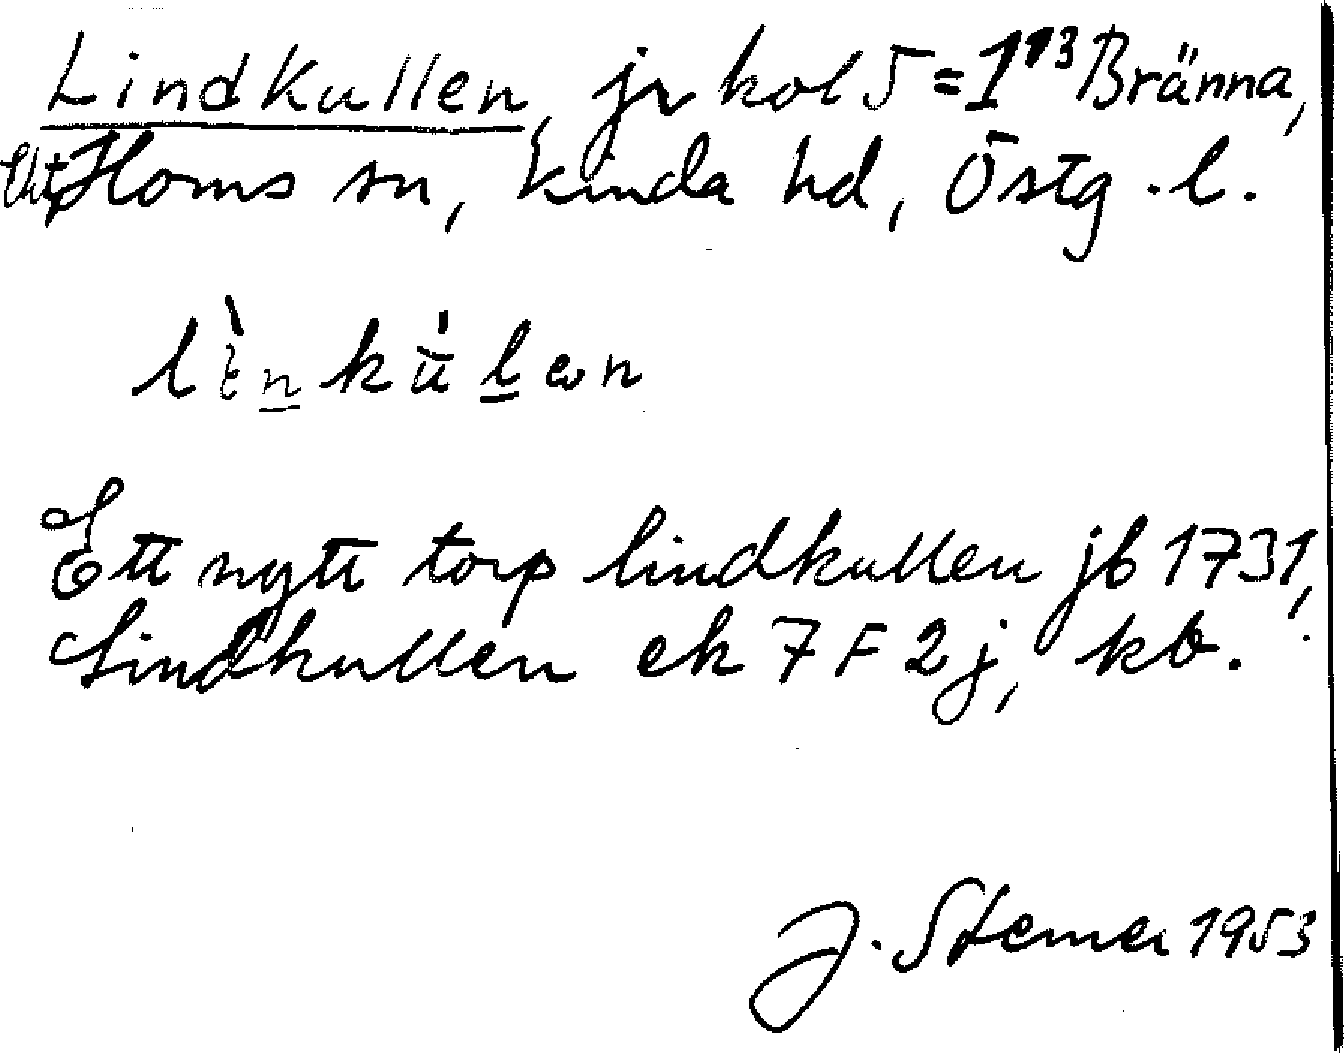 Lindkullen, jr kol 5 = 1"3 Bränna,
V:t Horns sn, Kinda hd, Östg. l.
lìnkùlen
Ett nytt torp lindkullen jb 1731,
Lindkullen ek 7 F 2 j, kb.
J. Stemer 1953